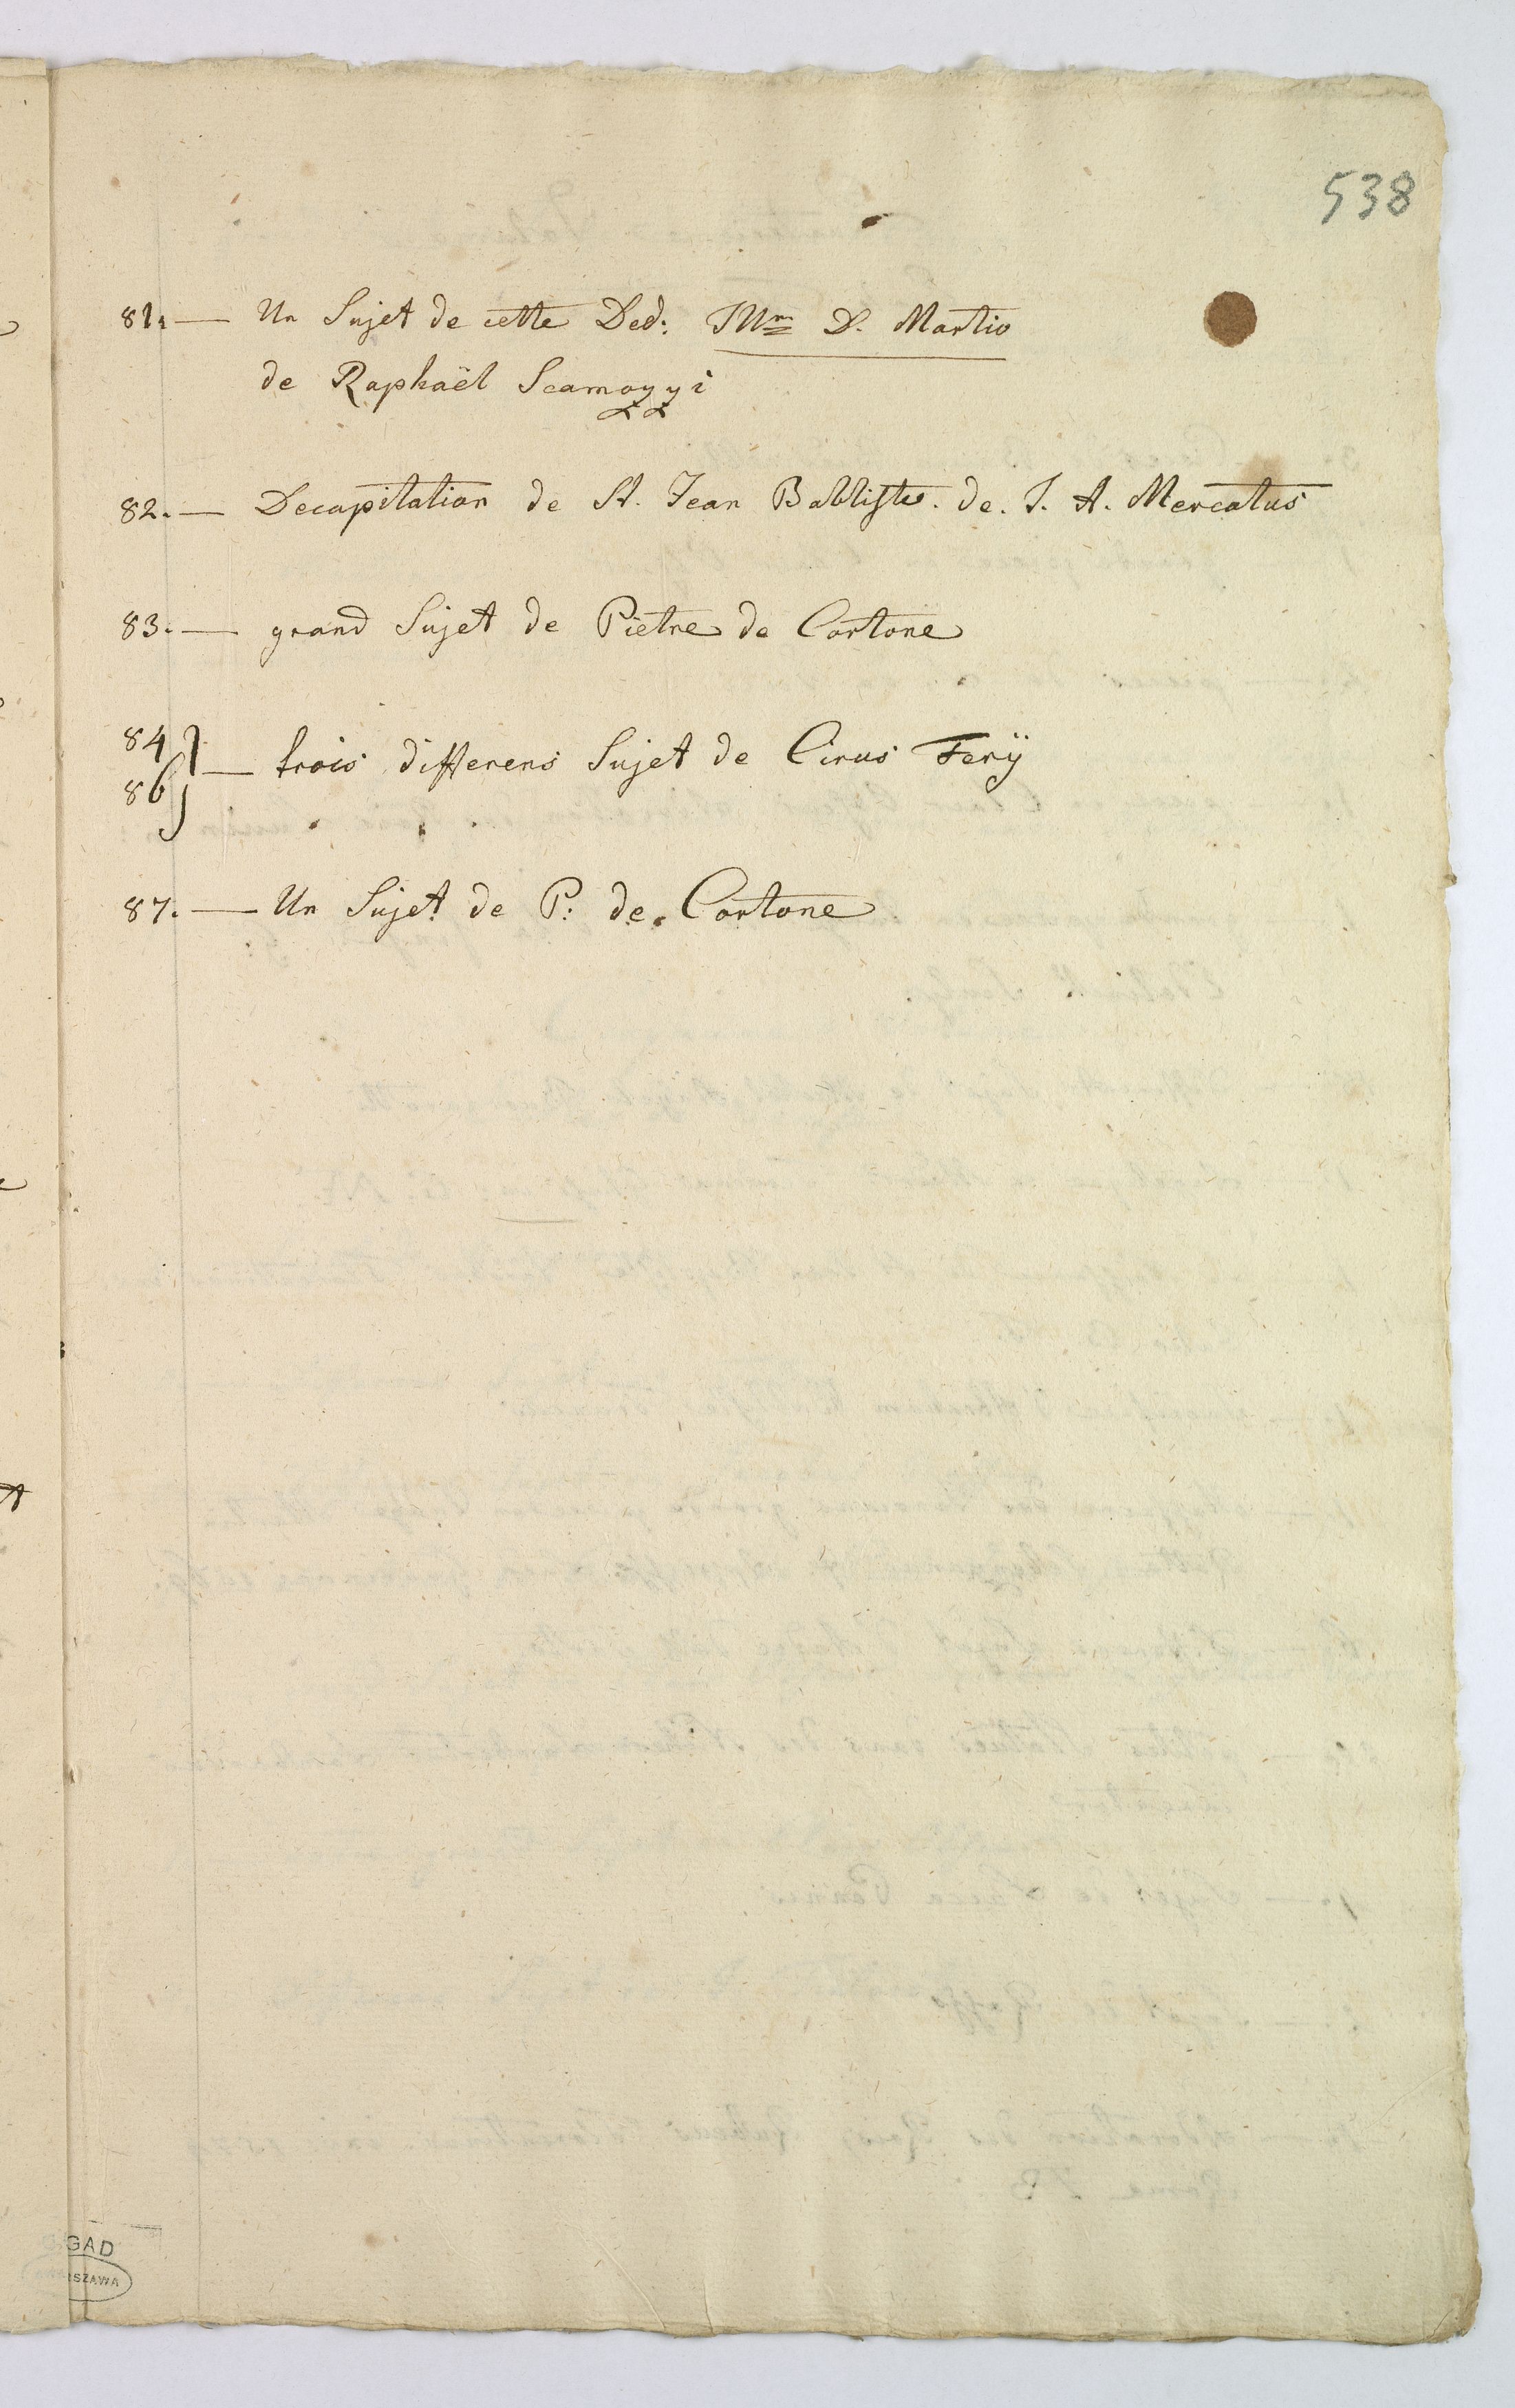 538
81. — Un Sujet de cette Ded: Illm D. Martio
de Raphaël Scamozzi
82. — Decapitation de St. Jean Babtiste. de. J. A. Mercatus
83. — grand Sujet de Pietre de Cortone
84
86 } — trois differens Sujet de Cirus Ferÿ
87. — Un Sujet de P: de Cortone
GAD
SZAWA